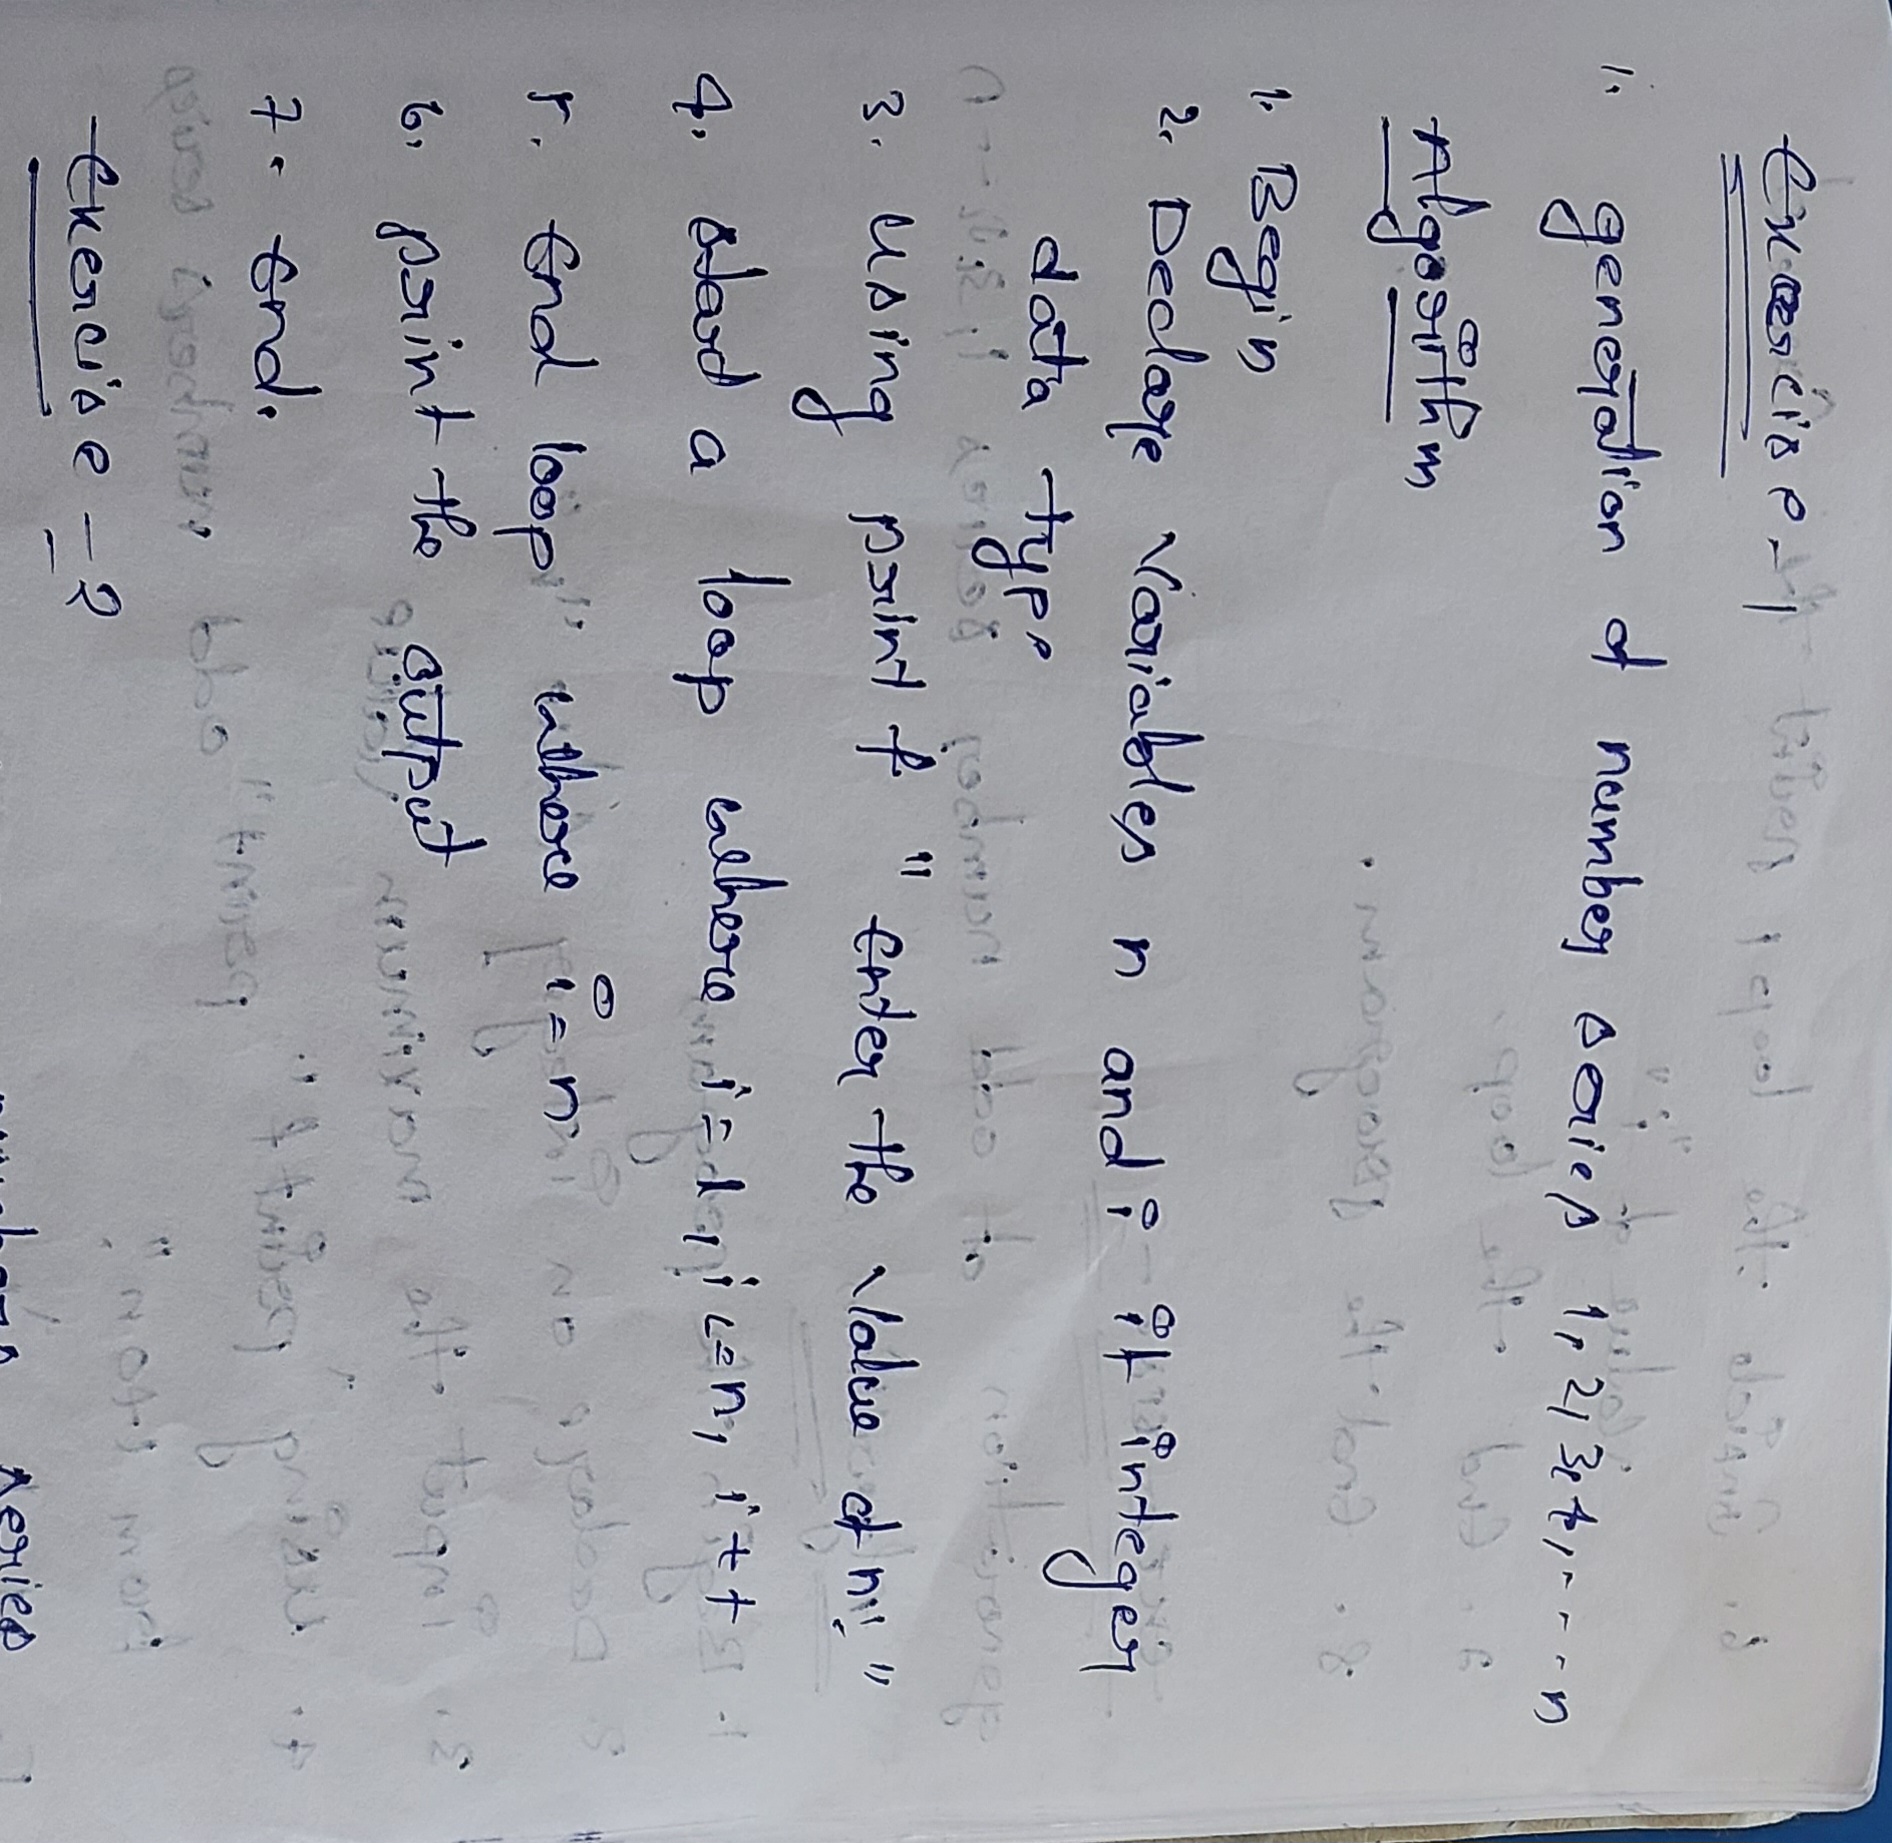 Exercise-1
1. generation of number series 1, 2, 3, 4, ---- n
Algorithm
1. Begin
2. Declare variables n and i it integer
data type
3. using print f " Enter the value of n"."
4. start a loop where i=1, i<=n, i++
5. End loop where i=n.
6. print the output
7. End.
Exercise-2
series